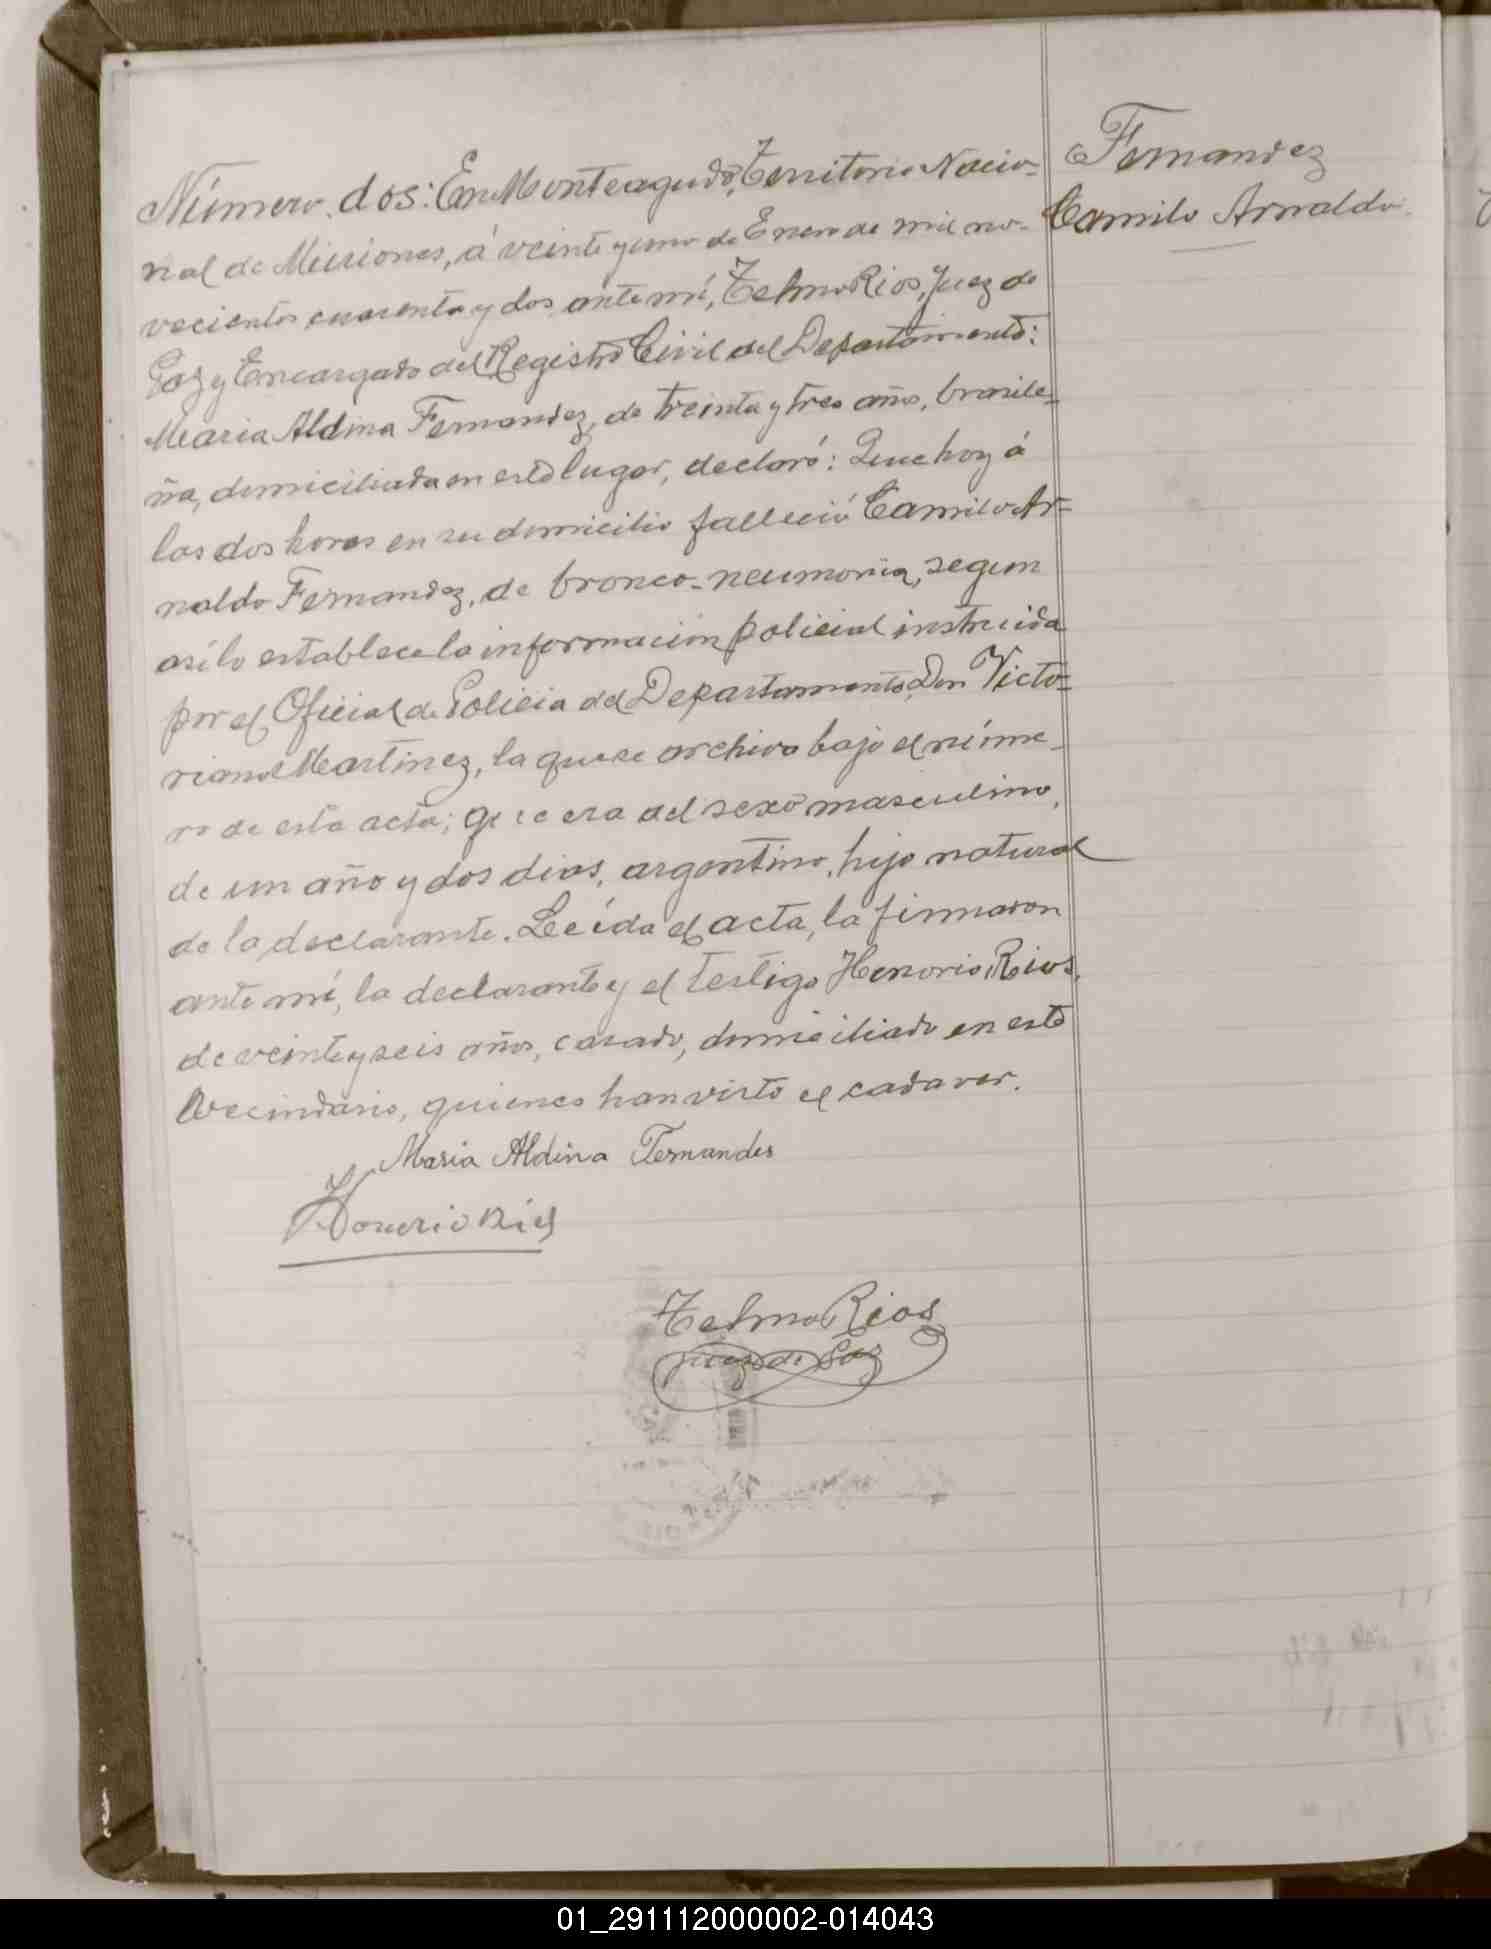 Fernandez
Camilo Arnaldo.
Número dos: En Monteagudo, Territorio Nacio-
nal de Misiones, á veinte y uno de Enero de mil no-
vecientos cuarenta y dos, ante mí, Telmo Rios, Juez de
Paz y Encargado del Registro Civil del Departamento:
Maria Aldina Fernandez, de treinta y tres años, brasile-
ña, domiciliada en este lugar, declaró: Que hoy á
las dos horas en su domicilio falleció Camilo Ar-
naldo Fernandez, de bronco-neumonia, segun
así lo establece la informacion policial instruida
por el Oficial de Policia del Departamento, Don Victo-
riano Martinez, la que se archiva bajo el núme-
ro de esta acta; que era del sexo masculino,
de un año y dos dias, argentino, hijo natural
de la declarante. Leída el acta, la firmaron
ante mí, la declarante y el testigo Honorio Rios,
de veinte y seis años, casado, domiciliado en este
vecindario, quienes han visto el cadaver.
Maria Aldina Fernandes
Honorio Rios
Telmo Rios
Juez de Paz
01_291112000002-014043